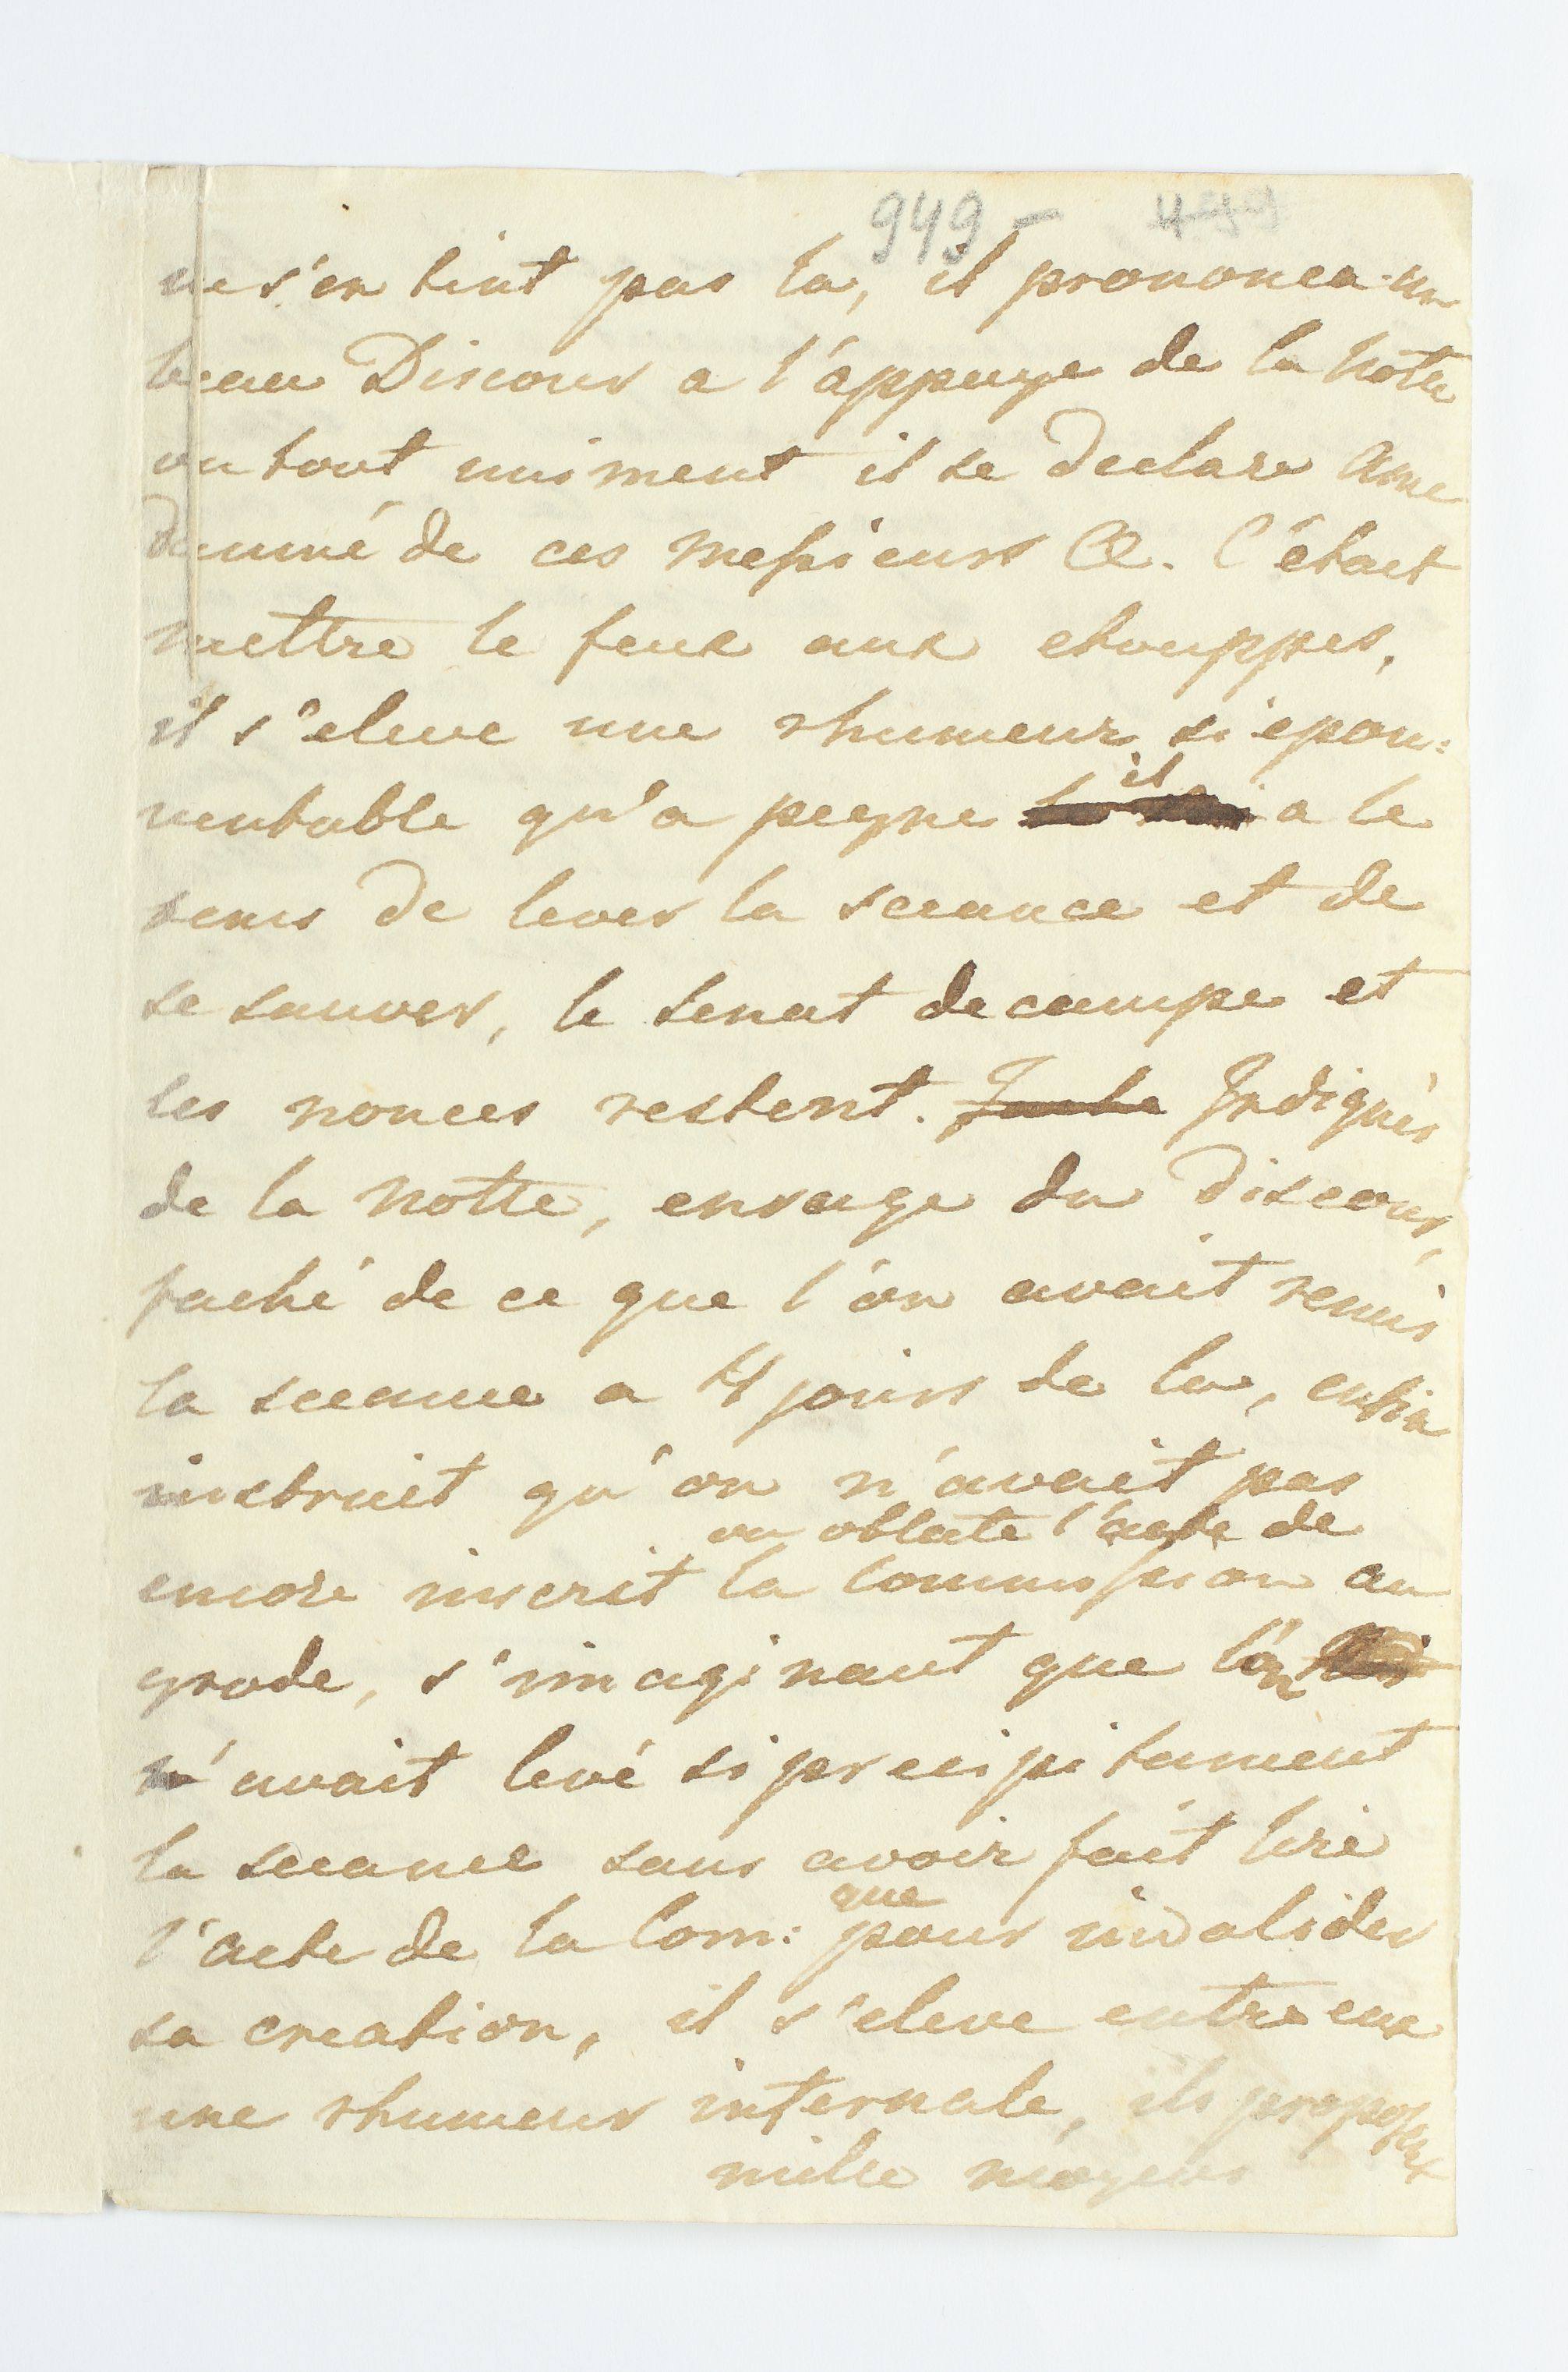 949 – 499
ne s'en tint pas la, il prononca un
beau Discours a l'áppuye de la Notte
ou tout uniment il se declare ame
damné de ces Messieurs &. C'était
mettre le feux aux etouppes,
il s'eleve une rhumeur si epou:
ventable qu'a peyne il a le
tems de lever la sceance et de
se sauver, le Senat decampe et
les nonces restent. Indignés
de la Notte, enrage du Discours,
faché de ce que l'ón avait remis
la sceance a 4 jours de la, enfin
instruit qu'on n'avait pas
ou oblate l'acte de
encore inscrit la Commission au
grode, s'imaginant que l'on
n'avait levé si precipitament
la sceance sans avoir fait lire
que
l'acte de la Com: pour invalider
sa creation, il s'eleve entre eux
une rhumeur infernale, ils proposent
mille moyens